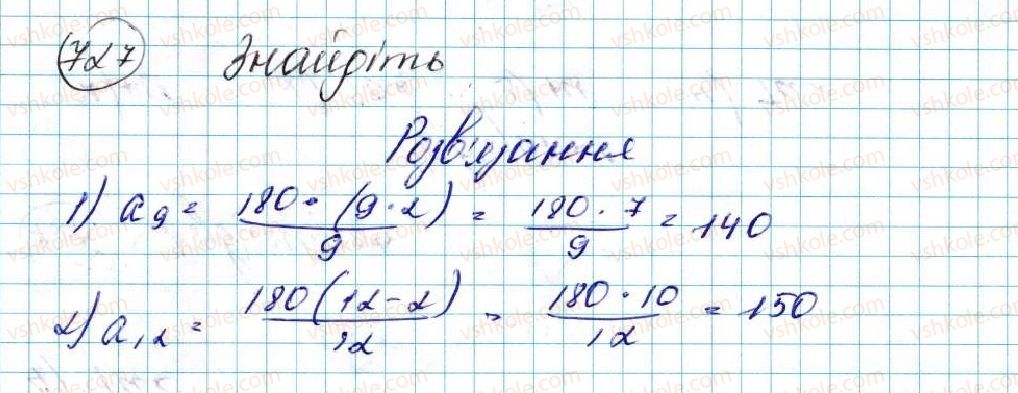 727 Знайдіть
Розв'язання
1) a₉ = 180 · (9 · 2) / 9 = 180 · 7 / 9 = 140
2) a₁₂ = 180 (12 - 2) / 12 = 180 · 10 / 12 = 150